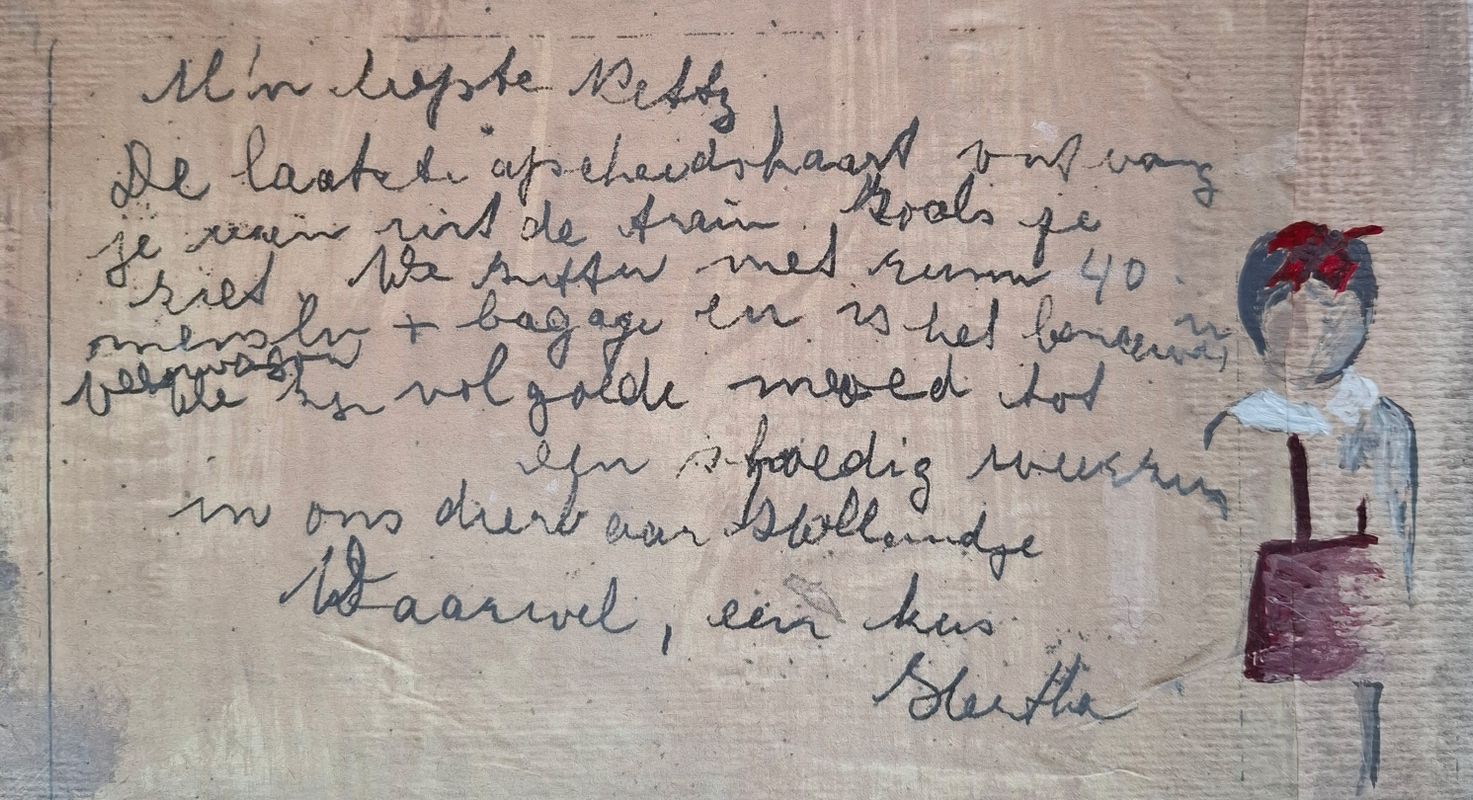 M'n liefste Netty,
De laatste afscheidskaart ontvang
je uit de trein. Zoals je
ziet. We zitten met ruim 40
menschen + bagage en is het benauwd, in
veewagon
We zijn vol goede moed tot
een spoedig weerzien
in ons dierbaar Hollandje
Vaarwel, een kus
Hertha